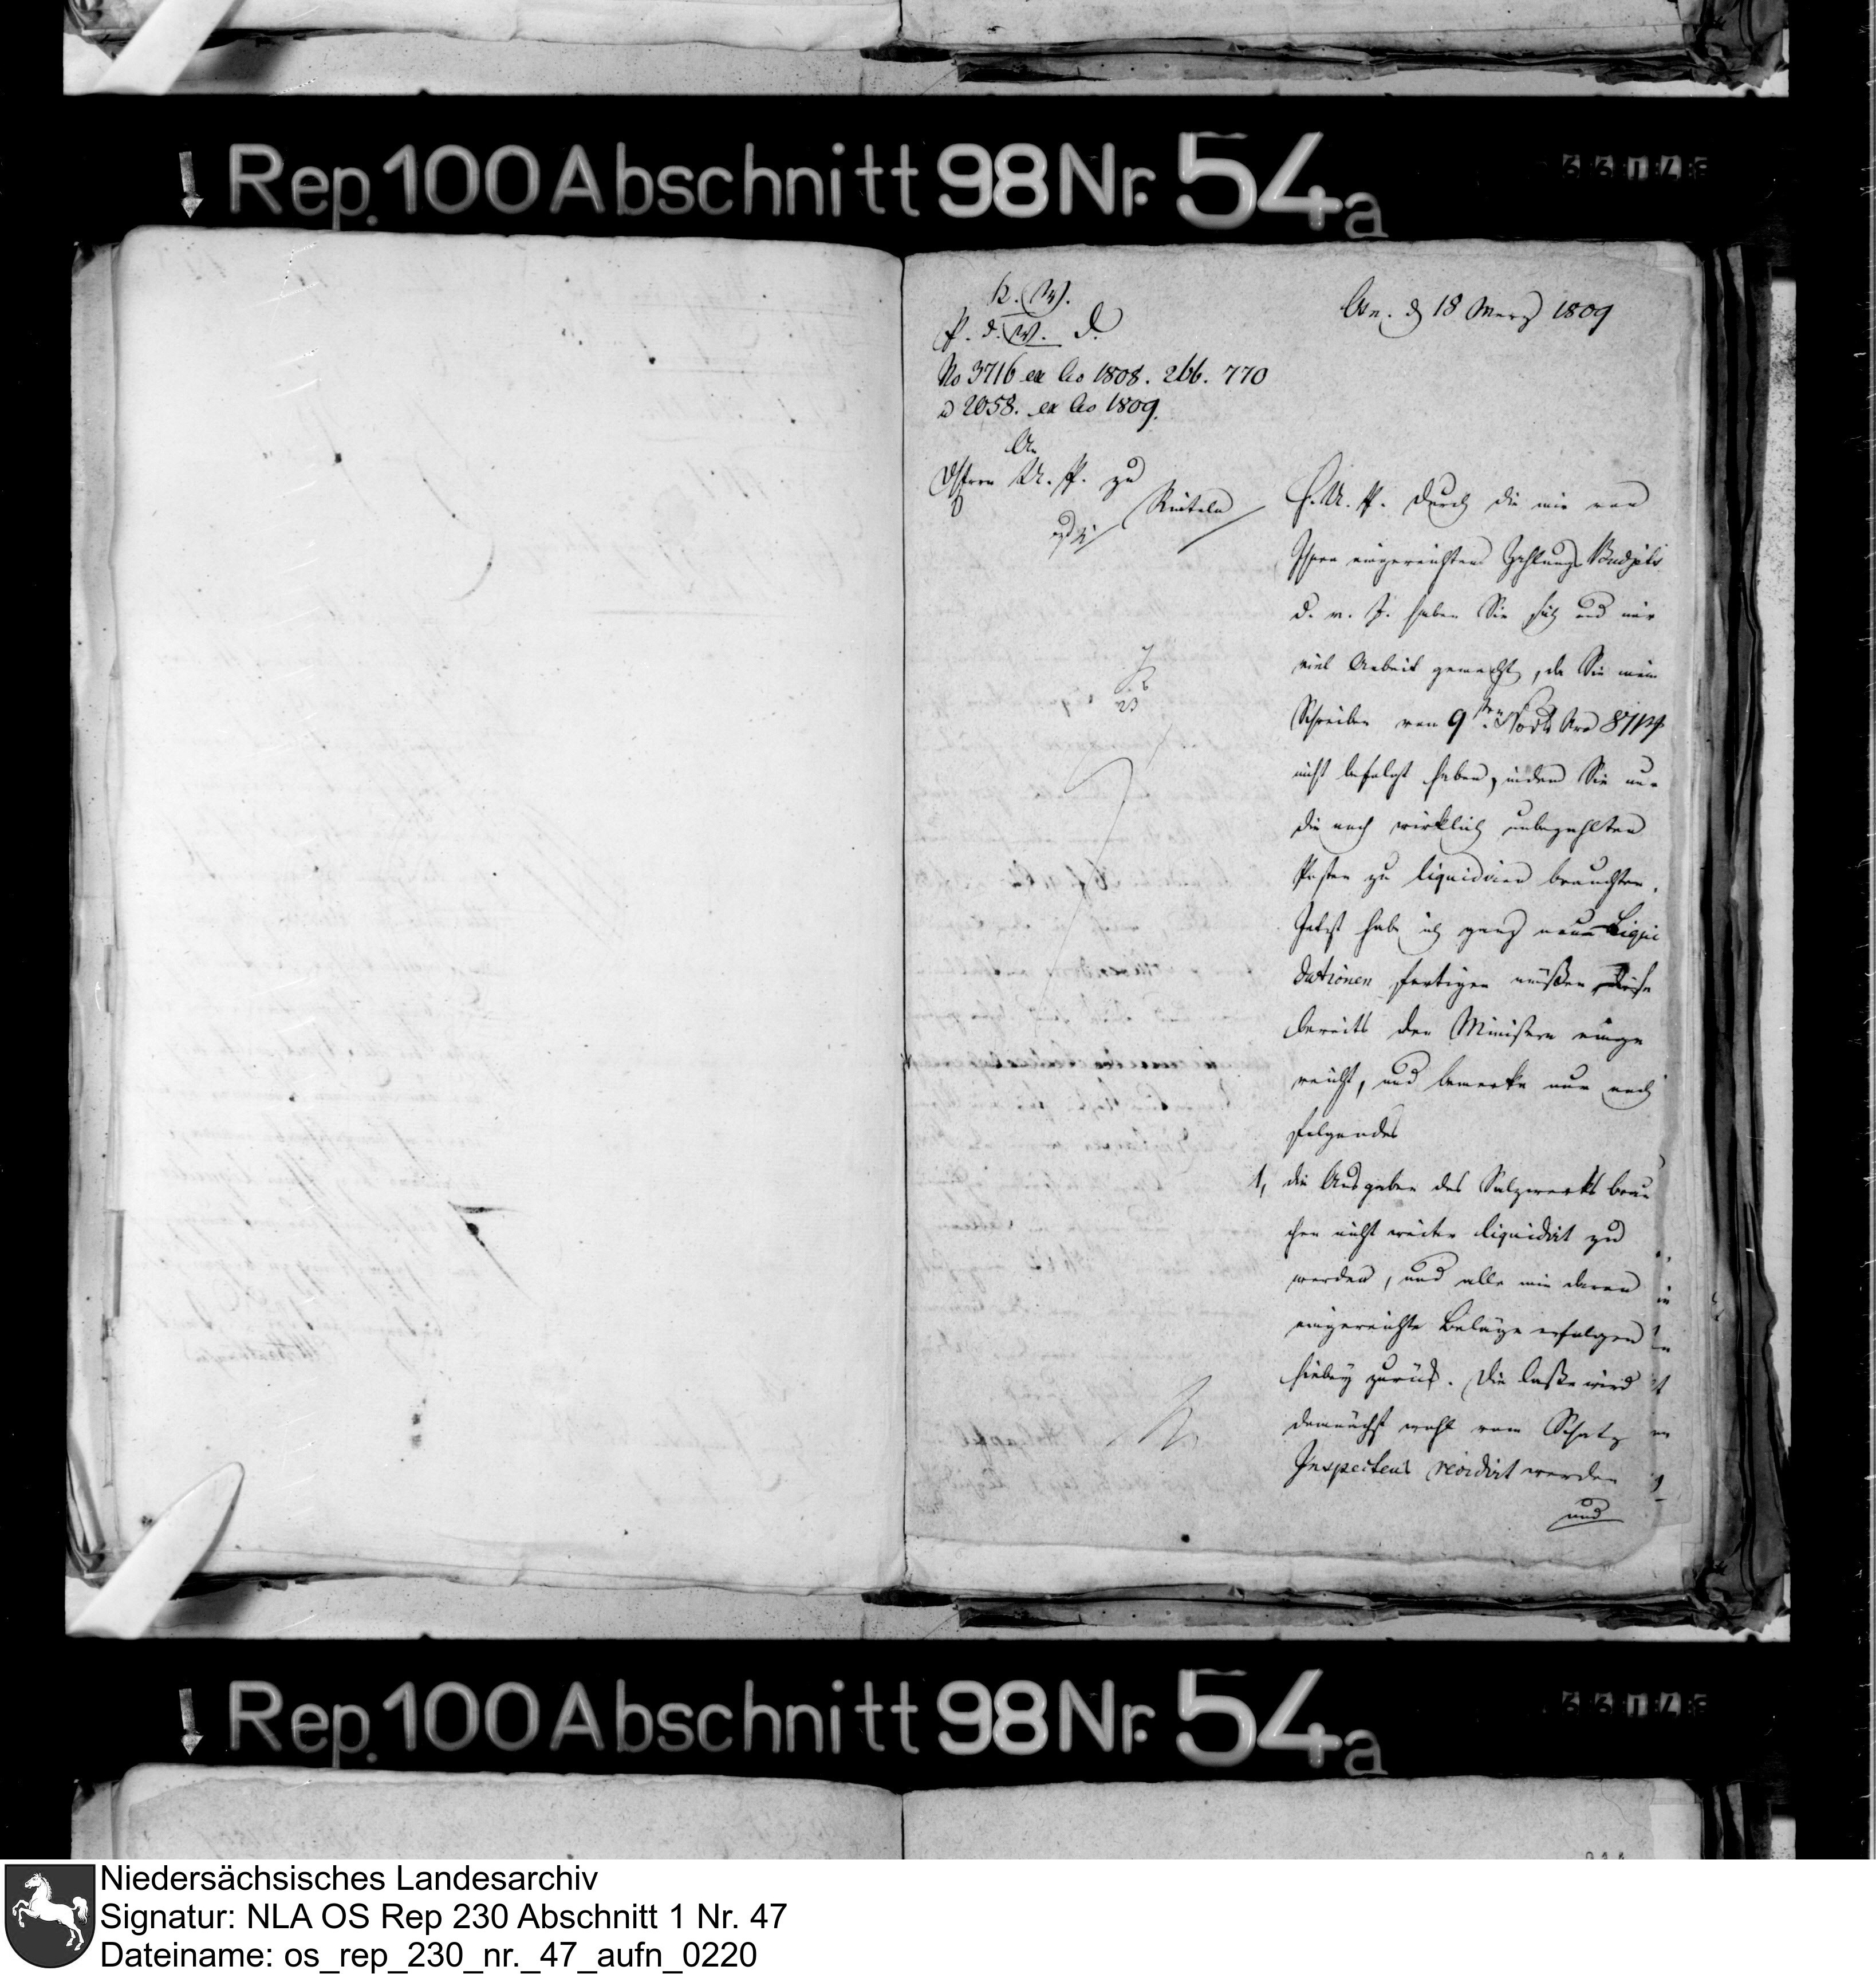 Rep. 100 Abschnitt 98 Nr. 54a
K. W.
P. d. W. D.
Osn. d 18 Merz 1809
No 3716 ex Ao 1808. 266. 770
u 2058. ex Ao 1809.
An
Herrn U. P. zu
Rinteln
H. U. P. durch die mir von
Ihnen eingereichten Zahlungs Budjets
d. v. J. haben Sie sich und mir
viel Arbeit gemacht, da Sie mein
Schreiben vom 9ten Nro
nicht befolgt haben, indem Sie nur
die noch wirklich unbezahlten
Posten zu liquidiren brauchten.
Jetzt habe ich ganz neue Liqui
dationen fertigen müßen, diese
bereits den Ministern einge
reicht, und bemerke nur noch
folgendes
1, die Ausgaben des Salzwerks brau
chen nicht weiter liquidirt zu
werden, und alle mir davon
eingereichte Beläge erfolgen
hiebey zurück. Die Caße wird
demnächst wohl vom Schatz
Inspecteur revidirt werden
und
Rep. 100 Abschnitt 98 Nr. 54a
Niedersächsisches Landesarchiv
Signatur: NLA OS Rep 230 Abschnitt 1 Nr. 47
Dateiname: os_rep_230_nr._47_aufn_0220